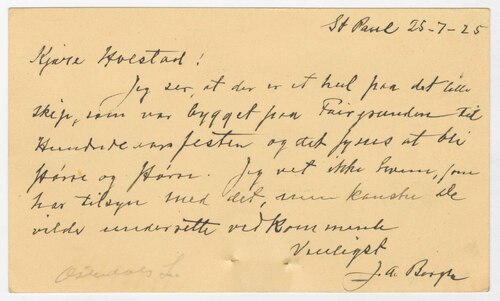 St Paul 25-7-25
Kjære Hvestad!
Jeg ser, at der er et hul paa det lille
skip, som var bygget paa Fairgrunden til
Hundredeaarsfesten og det synes at bli
større og større. Jeg vet ikke hvem, som
har tilsyn med det, men kanske De
vilde underrette vedkommende
Venligst
J. A.